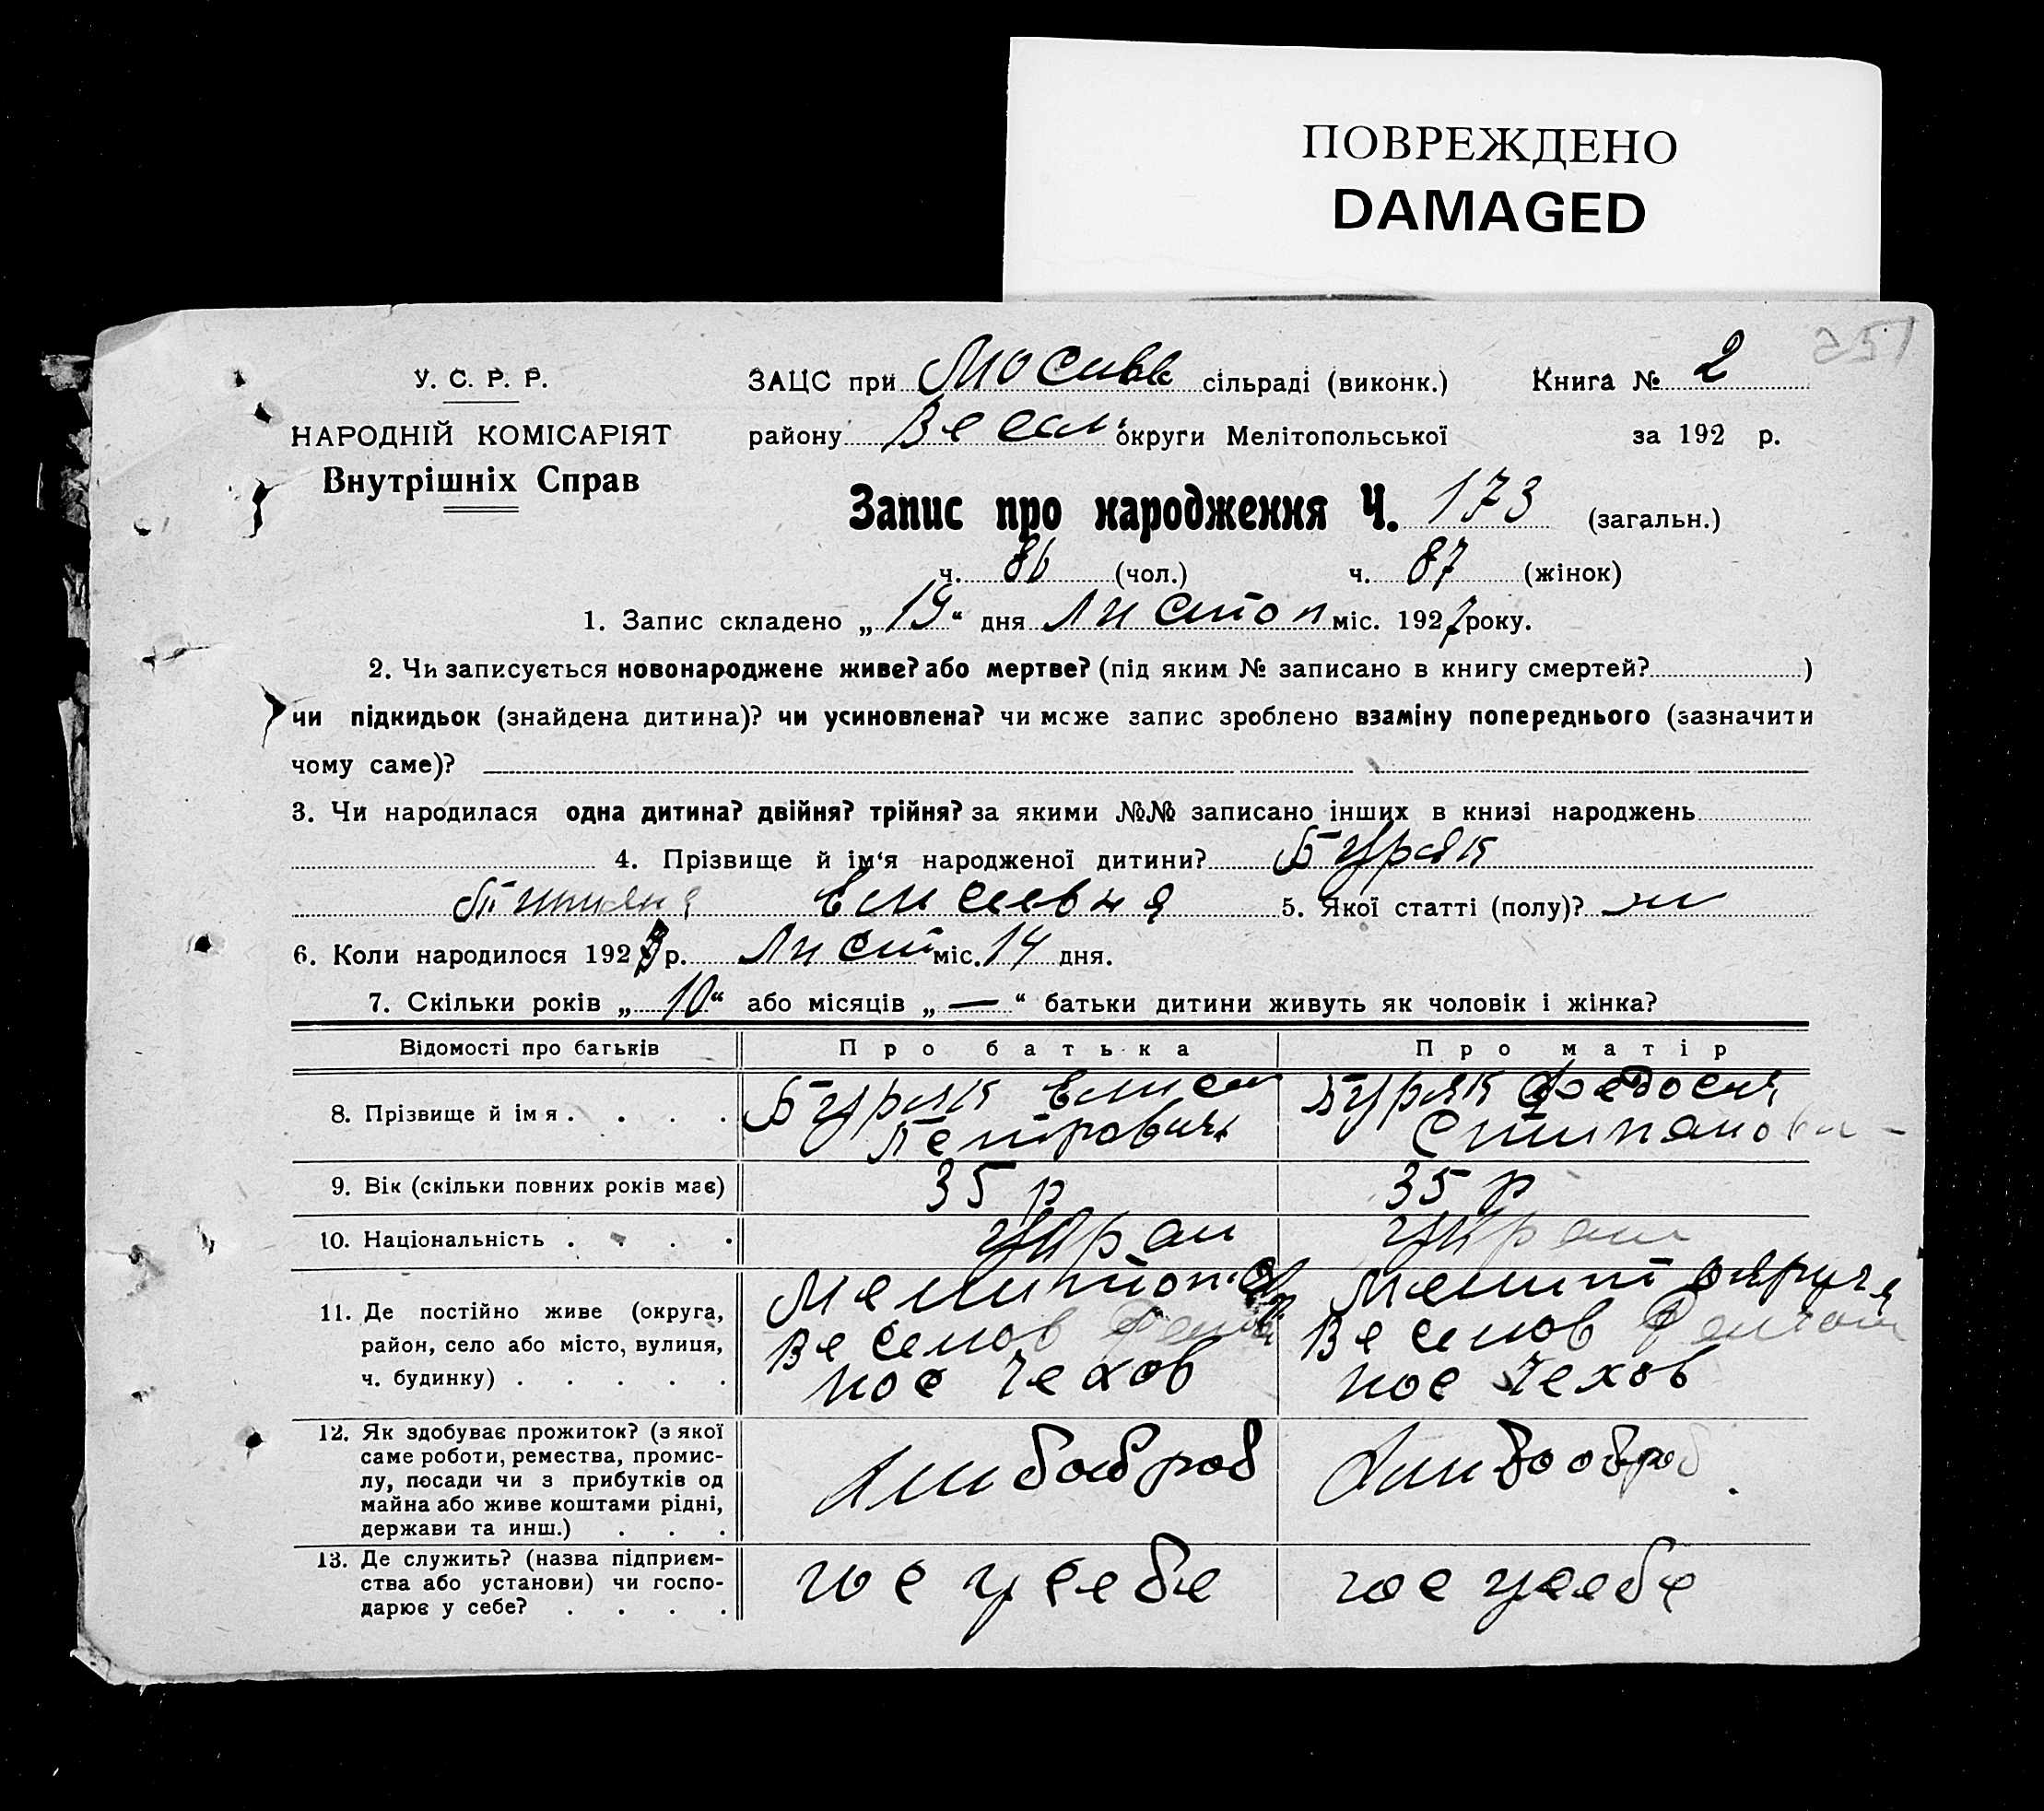 ПОВРЕЖДЕНО
DAMAGED
251
У. С. Р. Р.
НАРОДНІЙ КОМІСАРІЯТ
Внутрішніх Справ
ЗАЦС при сільраді (виконк.) Книга № 2
району Весел округи Мелітопольської за 192 р.
Запис про народження Ч. 173 (загальн.)
ч. 86 (чол.) ч. 87 (жінок)
1. Запис складено „ 19 “ дня Листоп міс. 1927 року.
2. Чи записується новонароджене живе? або мертве? (під яким № записано в книгу смертей? )
чи підкидьок (знайдена дитина)? чи усиновлена? чи може запис зроблено взаміну попереднього (зазначити
чому саме)?
3. Чи народилася одна дитина? двійня? трійня? за якими №№ записано інших в книзі народжень
4. Прізвище й ім‘я народженої дитини? Буряк
Елисеевна 5. Якої статті (полу)?
6. Коли народилося 1927 р. Лист міс. 14 дня.
7. Скільки років „ 10 “ або місяців „ — “ батьки дитини живуть як чоловік і жінка?
Відомості про батьків Про батька Про матір
8. Прізвище й імя . . . . Буряк Елисей Петрович Буряк Федосия Степанов
9. Вік (скільки повних років має) 35 р 35 р
10. Національність . . . . Украи Украи
11. Де постійно живе (округа,
район, село або місто, вулиця,
ч. будинку) . . . . .
Мелитоп
Веселов
пос Чехов
Мелит округа
Веселов
пос Чехов
12. Як здобуває прожиток? (з якої
саме роботи, ремества, промис-
лу, посади чи з прибутків од
майна або живе коштами рідні,
держави та инш.) . . .
Хлибоброб
Хлибоороб
13. Де служить? (назва підприєм-
ства або установи) чи госпо-
дарює у себе? . . . .
гос у себе
гос у себе